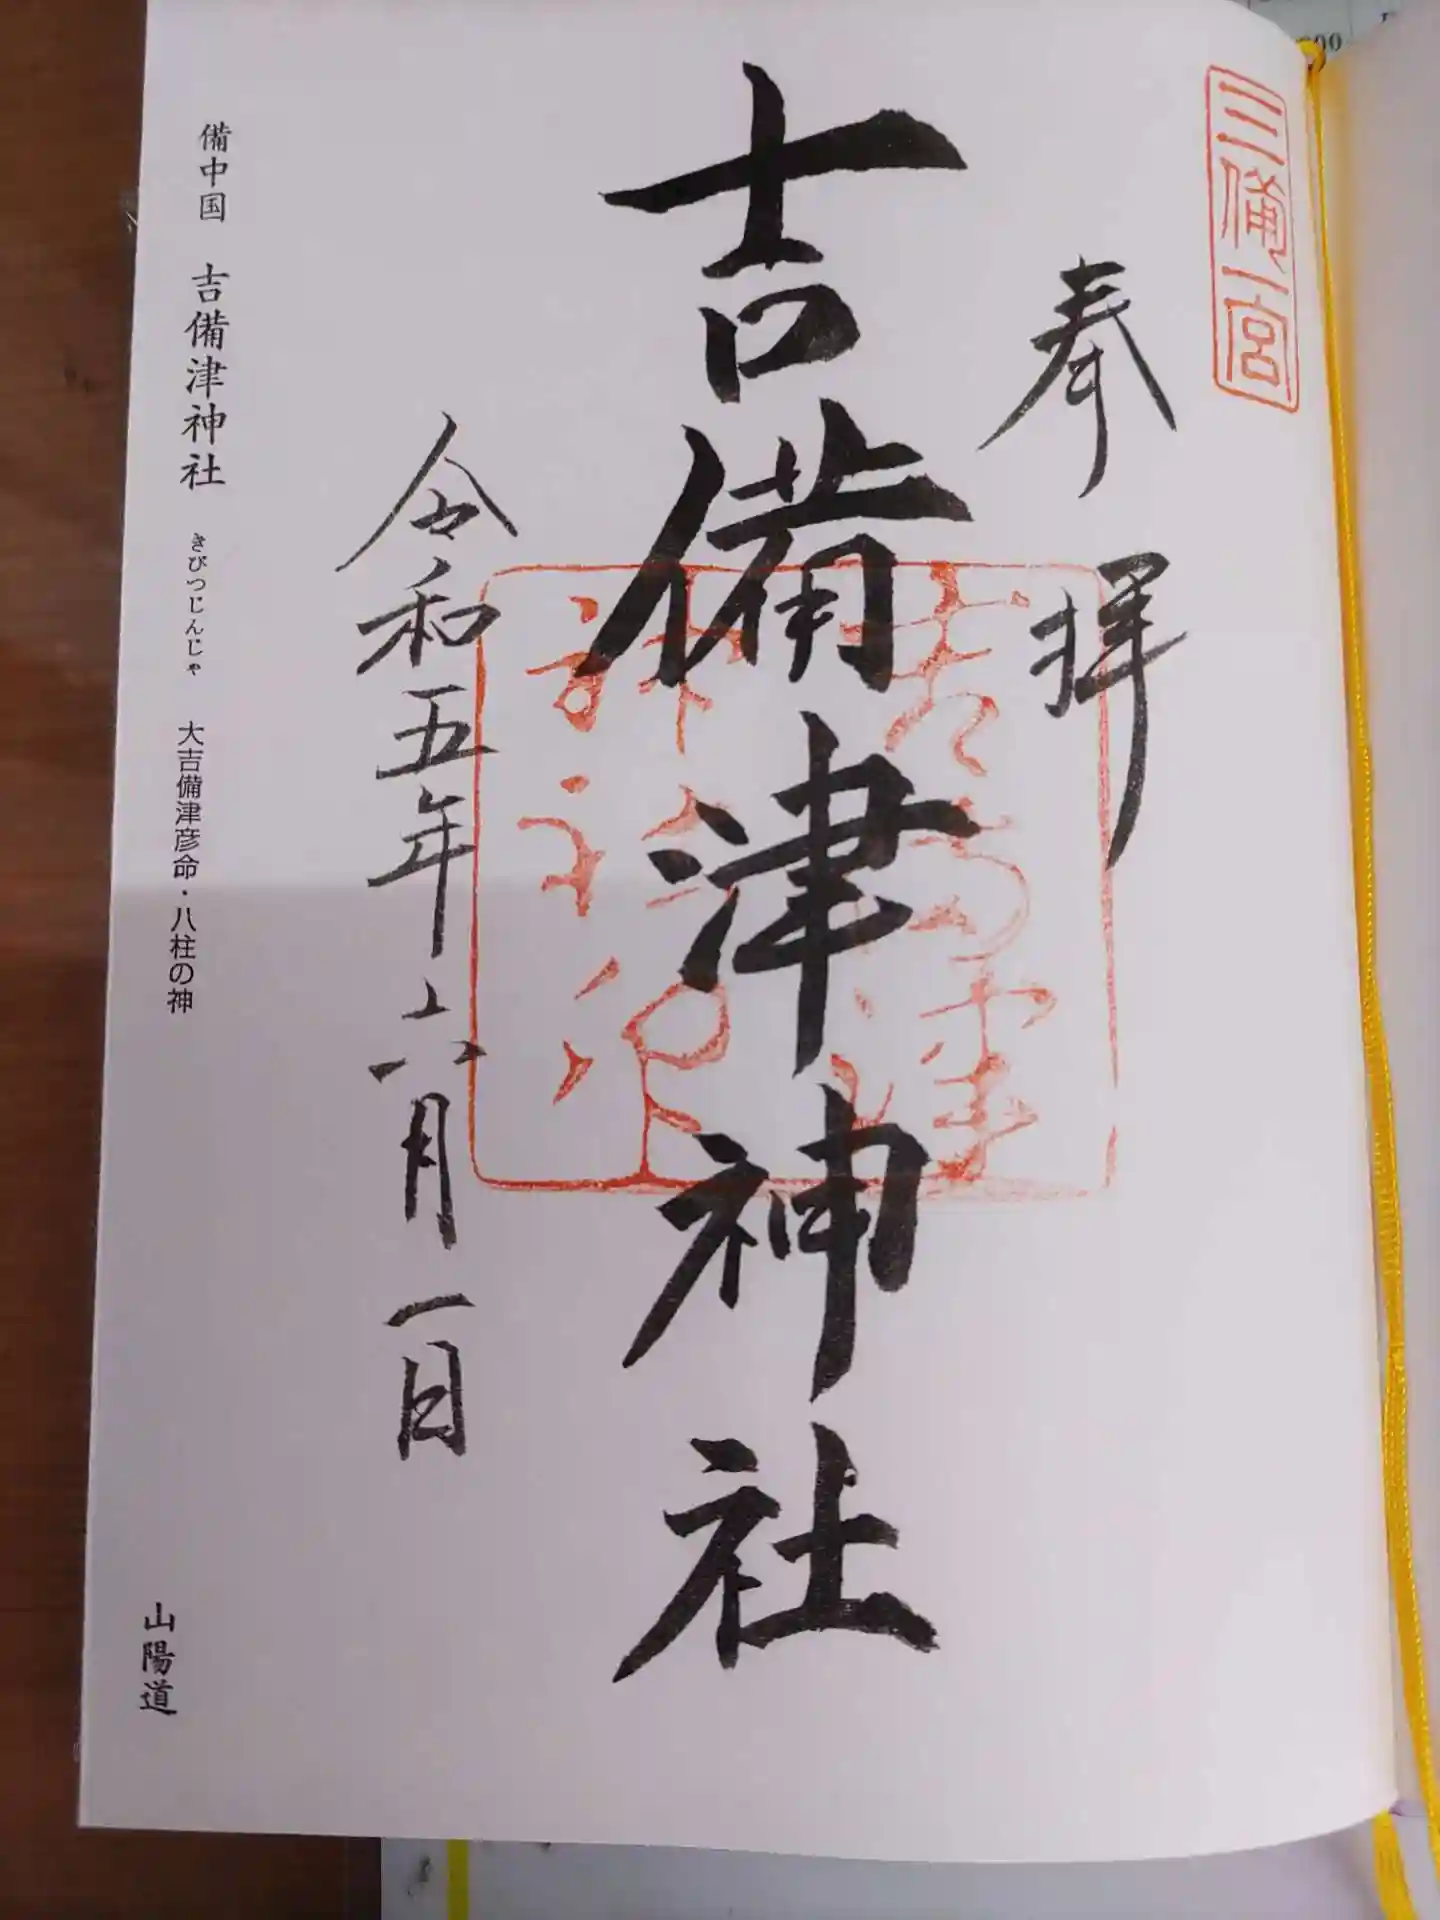 三備一宮
奉拝
吉備津神社
令和五年六月一日
備中国 吉備津神社 きびつじんじゃ 大吉備津彦命・八柱の神
山陽道